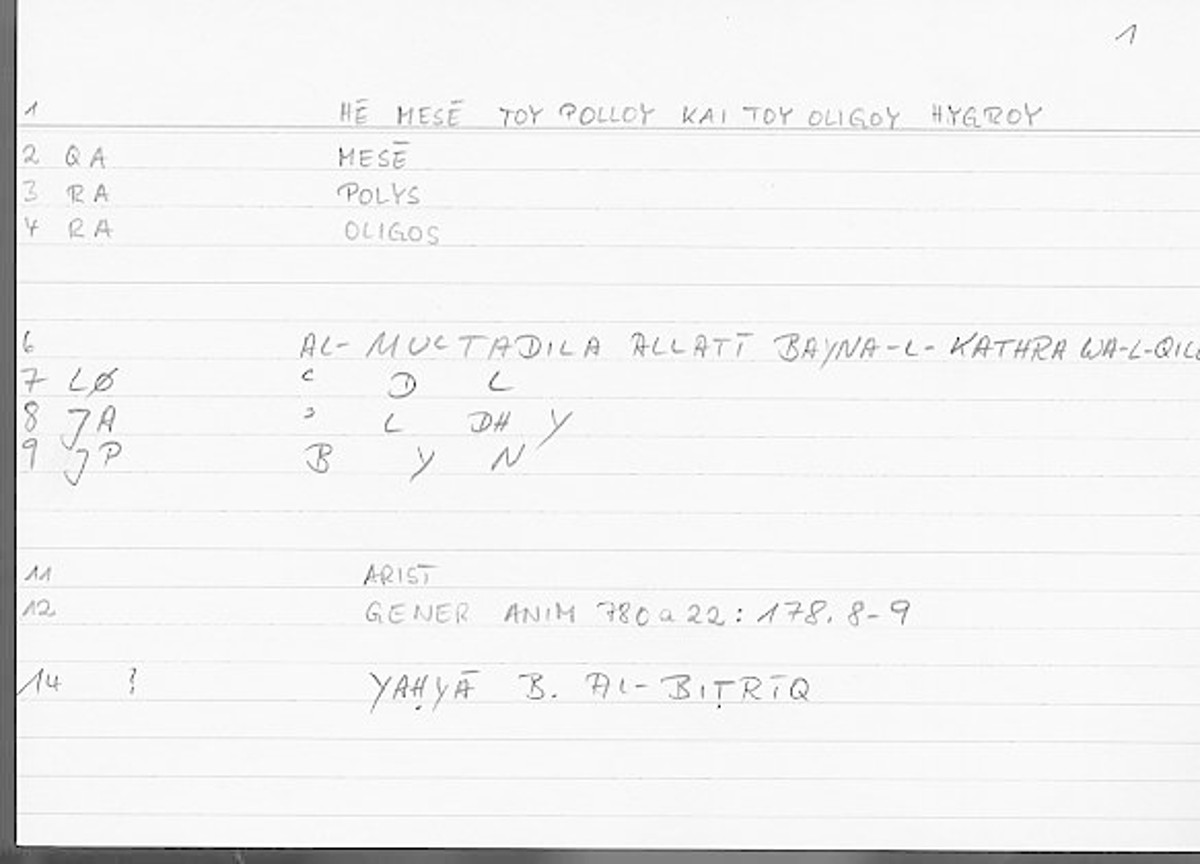 1
1 HĒ MESĒ TOY POLLOY KAI TOY OLIGOY HYGROY
2 QA MESĒ
3 RA POLYS
4 RA OLIGOS
6 AL-MUʿTADILA ALLATĪ BAYNA-L-KATHRA WA-L-QIL
7 LØ ʿ D L
8 JA ʾ L DH Y
9 JP B Y N
11 ARIST
12 GENER ANIM 780a22: 178.8-9
14 YAḤYĀ B. AL-BIṬRĪQ